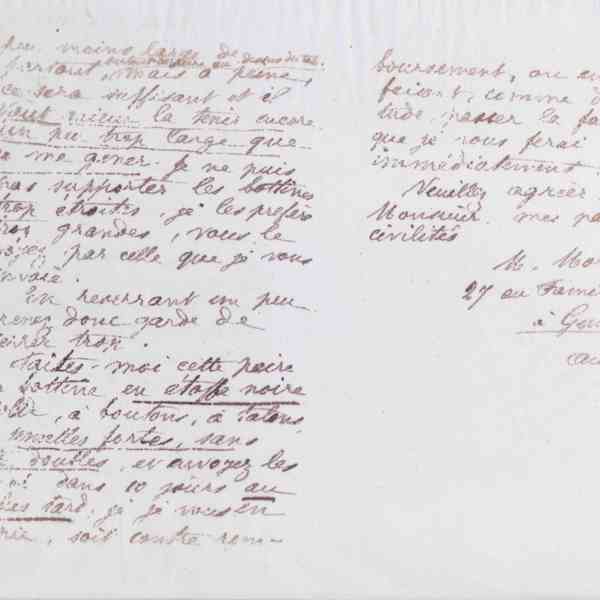 peu moins large de
partout mais à peine
ce sera suffisant et il
vaut mieux la tenir encore
un peu trop large que
me gener. Je ne puis
pas supporter les bottines
trop étroites, je les préfère
trop grandes, vous le
voyez par celle que je vous
envoie.
En resserrant un peu
prenez donc garde de
serrer trop.
Faites-moi cette paire
bottine en étoffe noire
, à boutons, à talons
semelles fortes, sans
doubles, envoyez les
dans 10 jours au
plus tard, je vous en
prie, soit contre rem-
boursement, ou en
faisant, comme
tude, passer la fa
que je vous ferai
immédiatement.
Veuillez agréer
Monsieur, mes
civilités
M. Mo
27 au
à